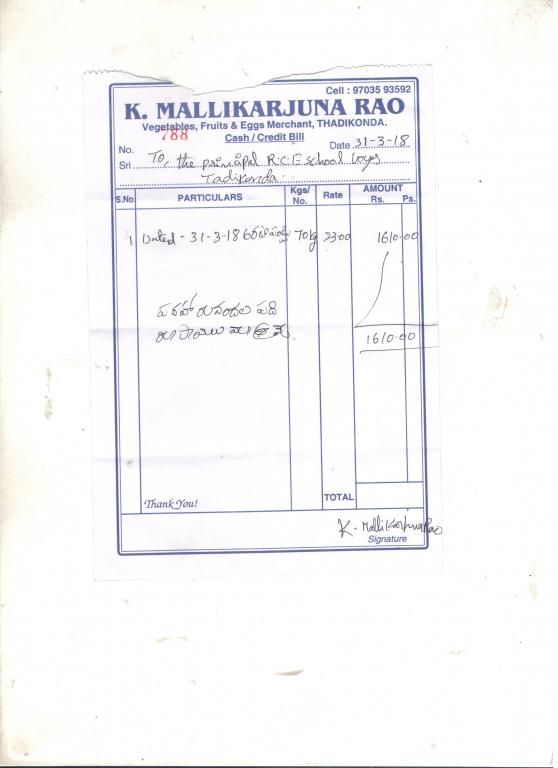 Cell : 97035 93592
K. MALLIKARJUNA RAO
Vegetables, Fruits & Eggs Merchant, THADIKONDA.
Cash / Credit Bill
No. 788
Date 31-3-18
Sri To, the principal R.C.E school
Tadikonda.
S.No. PARTICULARS Kgs/ No. Rate AMOUNT Rs. Ps.
1 Dated - 31-3-18 70kg 23.00 1610.00
పదహారు వందల పది
రూపాయలు మాత్రమే
1610.00
Thank You!
TOTAL
K. Mallikarjuna Rao
Signature